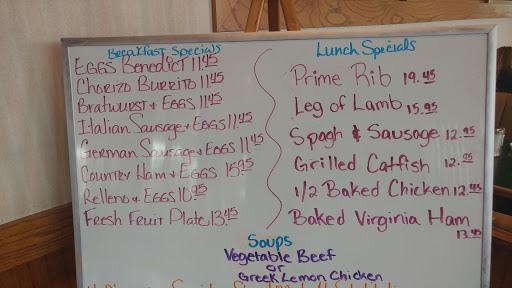 Breakfast Specials
EGGS Benedict 11.45
Chorizo Burrito 11.45
Bratwurst & EGGS 11.45
Italian Sausage & EGGS 11.45
German Sausage & EGGS 11.45
Country Ham & EGGS 15.95
Relleno & EGGS 10.95
Fresh Fruit Plate 13.45
Lunch Specials
Prime Rib 19.45
Leg of Lamb 15.95
Spagh & Sausage 12.95
Grilled Catfish 12.95
1/2 Baked Chicken 12.45
Baked Virginia Ham
13.45
Soups
Vegetable Beef
or
Greek Lemon Chicken